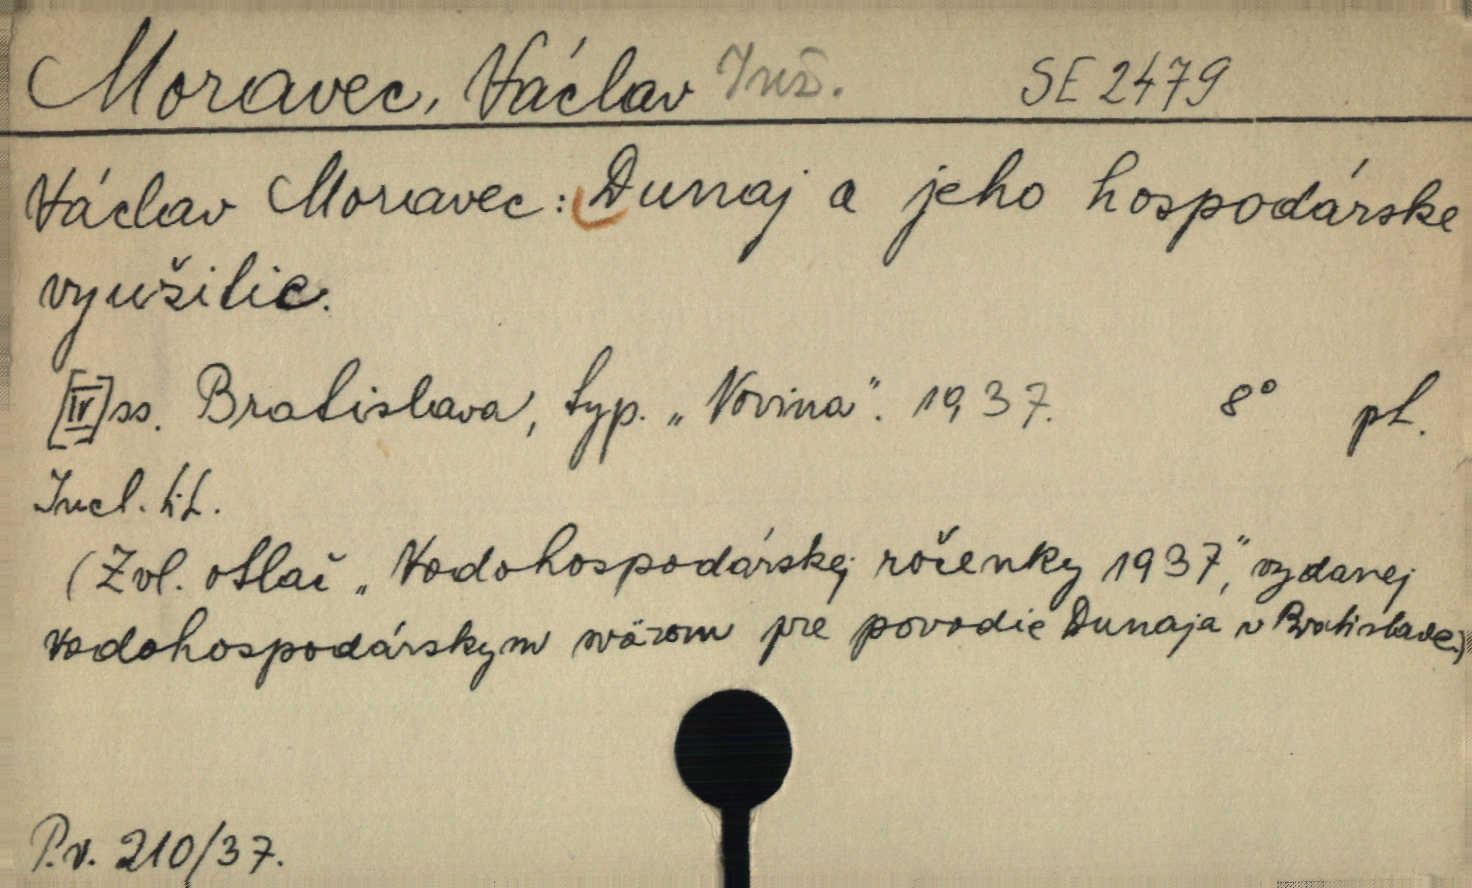 Moravec, Václav Inž. SE 2479
Václav Moravec: Dunaj a jeho hospodárske
využitie.
[IV] ss. Bratislava, typ. „Novina". 1937. 8° pt.
Incl. tit.
(Zvl. otlač „Vodohospodárskej ročenky 1937", vydanej
vodohospodárskym sväzom pre povodie Dunaja v Bratislave.)
P.v. 210/37.